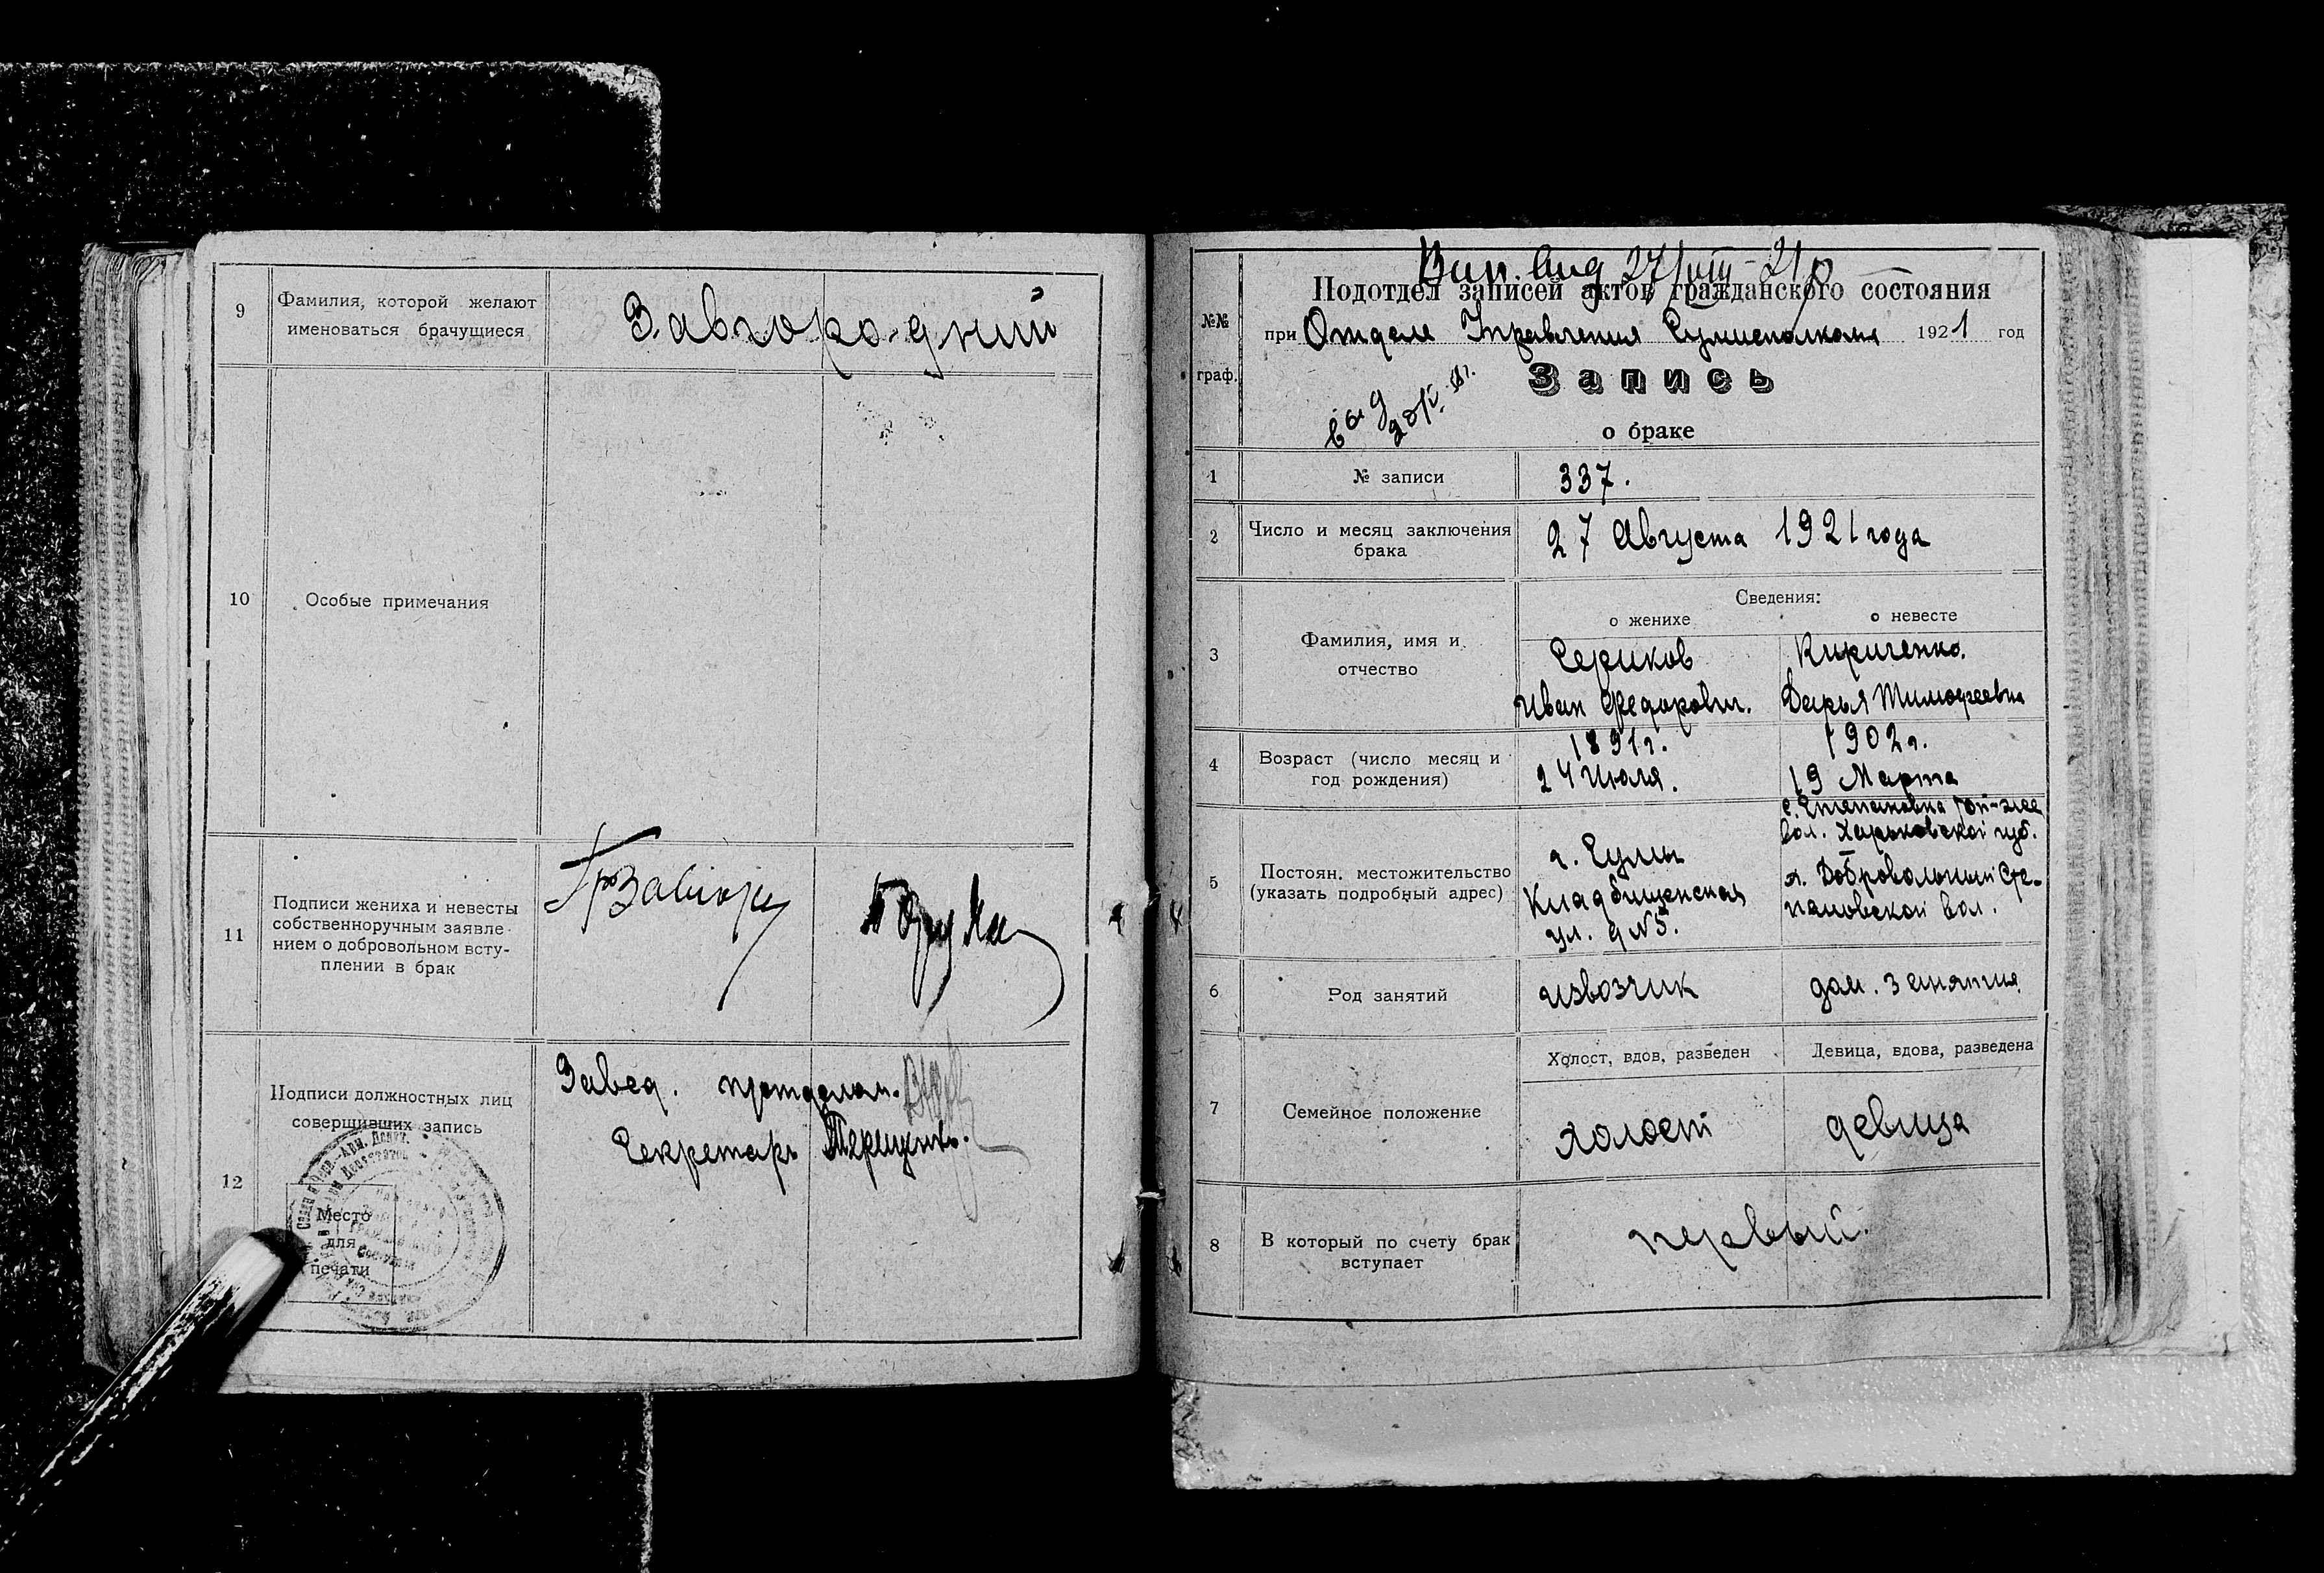 9
Фамилия, которой желают
именоваться брачущиеся
Завгородний
10
Особые примечания
11
Подписи жениха и невесты
собственноручным заявле-
нием о добровольном всту-
плении в брак
12
Подписи должностных лиц
совершивших запись
Завед. п/отделом
Секретарь
Место
для
печати
№№
граф.
Подотдел записей актов гражданского состояния
при Отделе Управления Сумисполкома 1921 год
Запись
о браке
1
№ записи
337.
2
Число и месяц заключения
брака
27 Августа 1921 года
Сведения:
о женихе
о невесте
3
Фамилия, имя и
отчество
Сериков
Иван Федорович.
Кириченко.
Дарья Тимофеевна
4
Возраст (число месяц и
год рождения)
1891 г.
24 Июля.
1902 г.
19 Марта
5
Постоян. местожительство
(указать подробный адрес)
г. Сумы
Кладбищенская
ул. д №5.
с. Степановка той-же
вол. Харьковской губ.
х. Добровольный Сте-
пановской вол.
6
Род занятий
извозчик
дом. занятия
7
Семейное положение
Холост, вдов, разведен
Девица, вдова, разведена
холост
девица
8
В который по счету брак
вступает
первый.